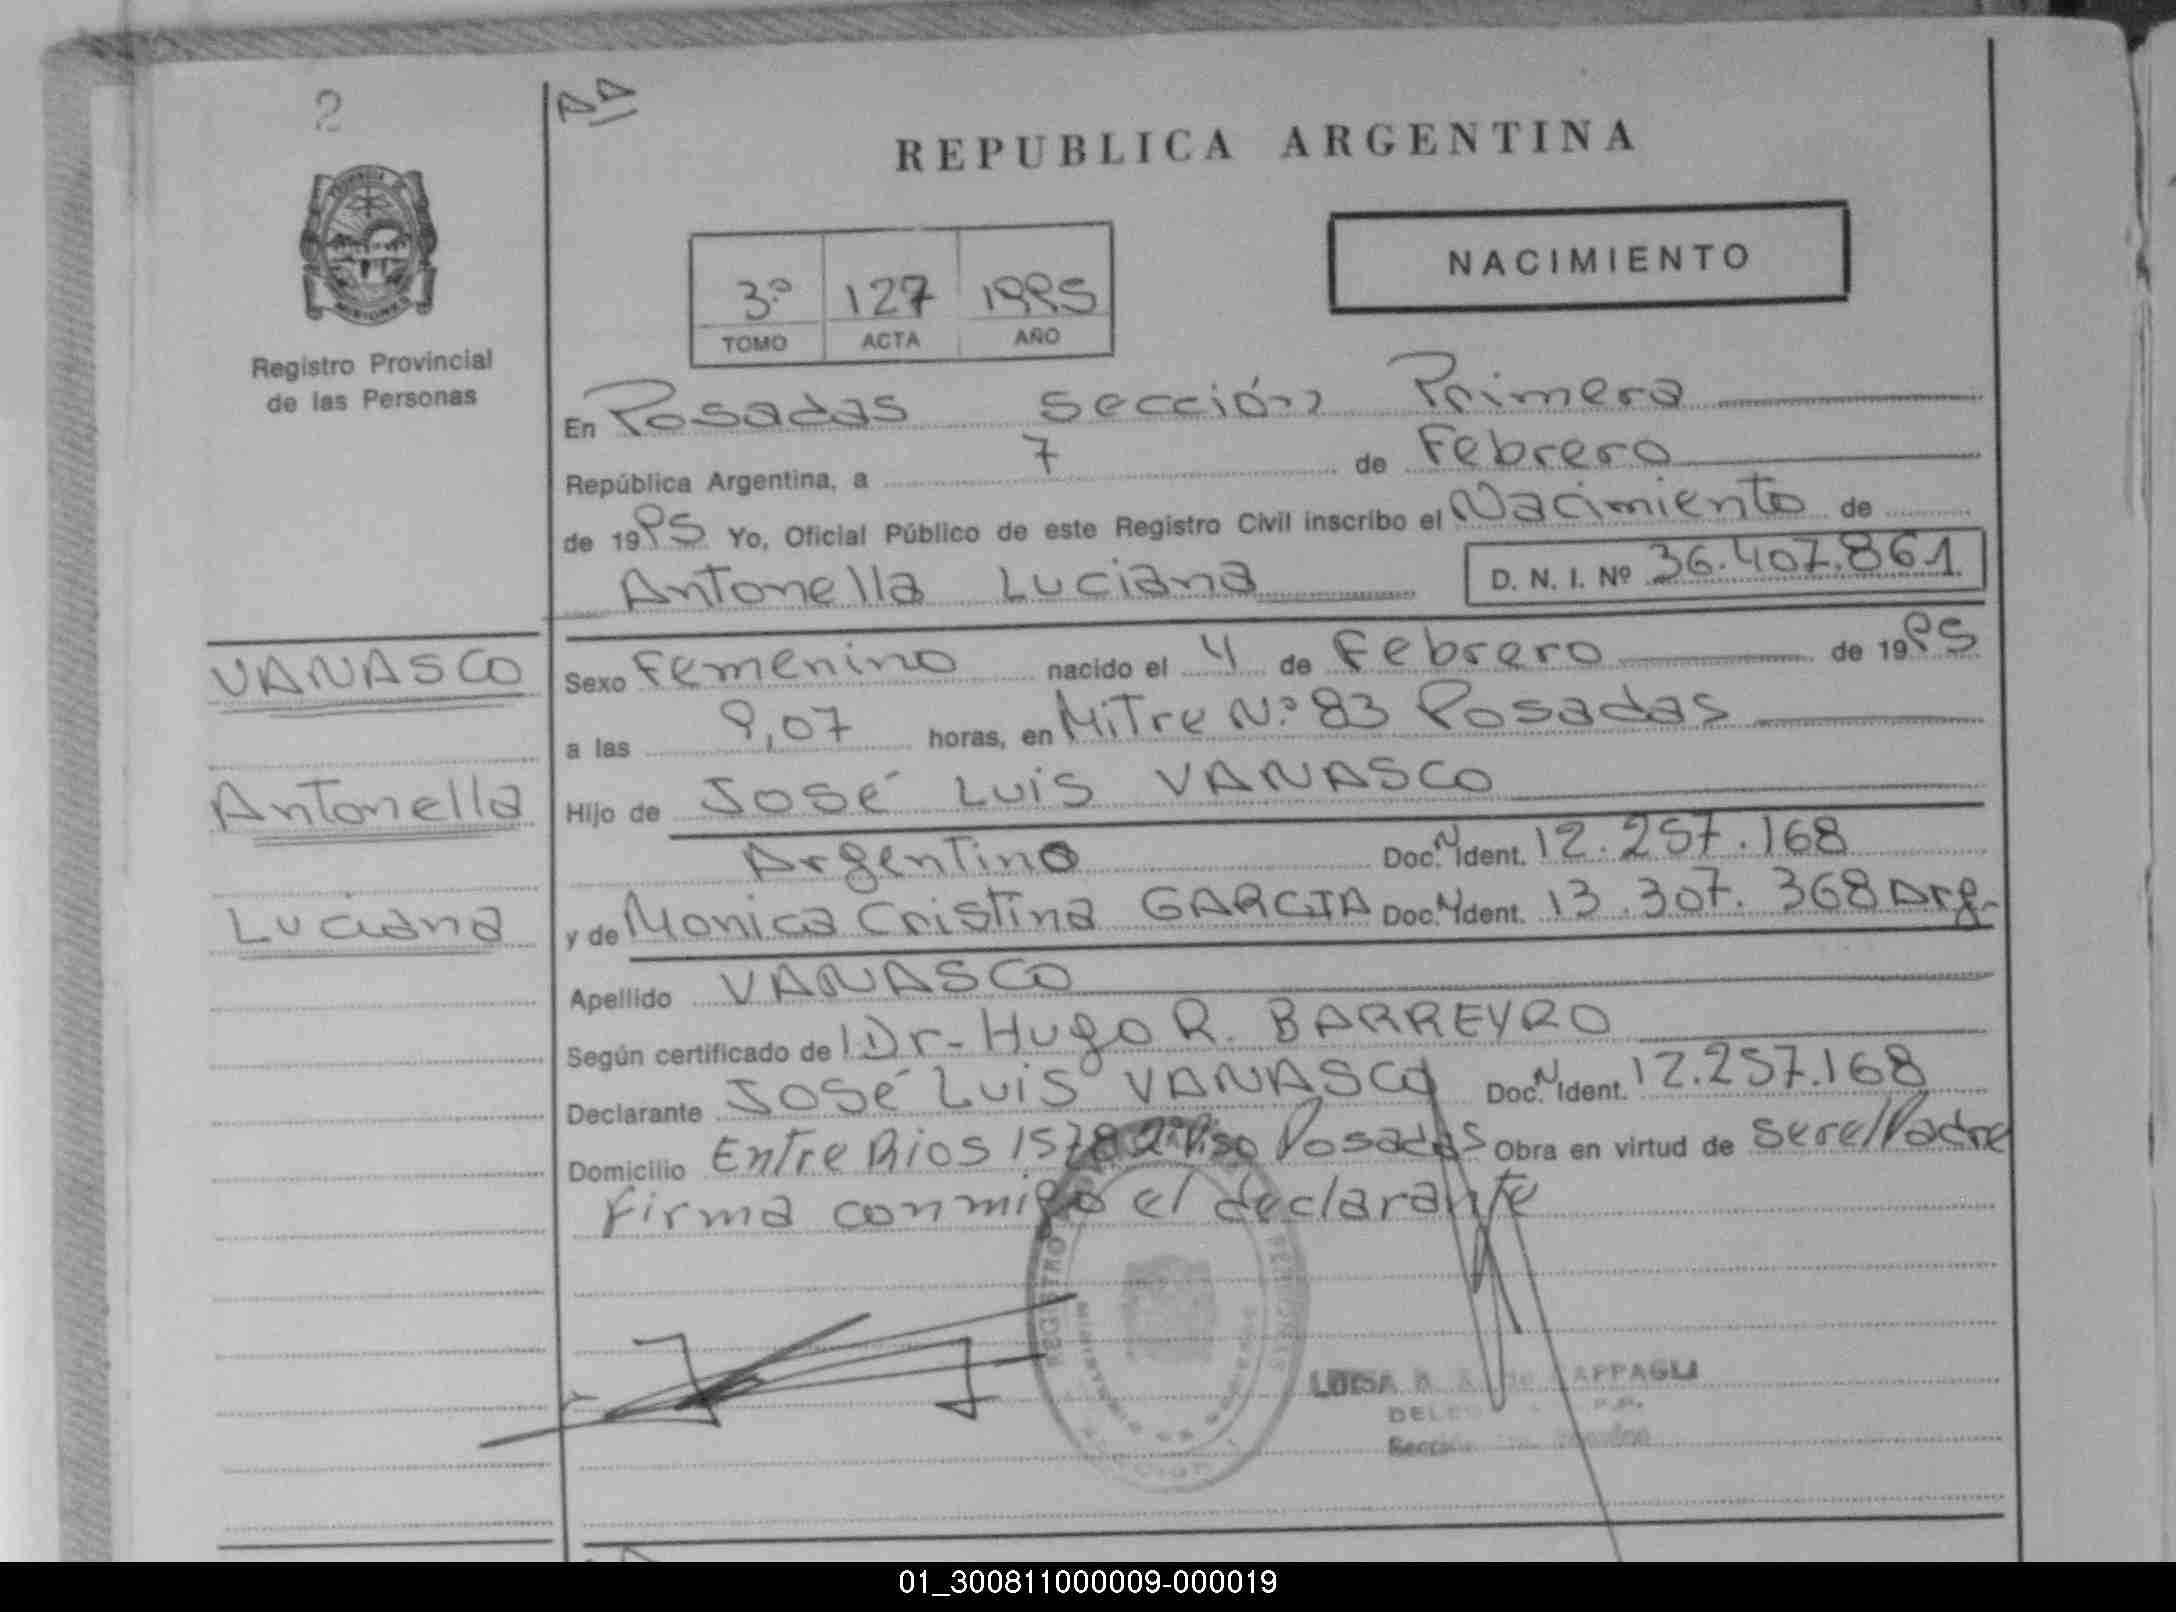 2
AA
REPUBLICA ARGENTINA
PROVINCIA DE
MISIONES
Registro Provincial
de las Personas
3º 127 1995
TOMO ACTA AÑO
NACIMIENTO
En Posadas sección Primera
República Argentina, a 7 de Febrero
de 1995 Yo, Oficial Público de este Registro Civil inscribo el Nacimiento de
Antonella Luciana D. N. I. Nº 36.407.861
VANASCO
Antonella
Luciana
Sexo Femenino nacido el 4 de Febrero de 1995
a las 9,07 horas, en Mitre N.º 83 Posadas
Hijo de José Luis VANASCO
Argentino Doc. N Ident. 12.257.168
y de Monica Cristina GARCIA Doc. N Ident. 13.307.368 Arg.
Apellido VANASCO
Según certificado de Dr- Hugo R. BARREYRO
Declarante José Luis VANASCO Doc. N Ident. 12.257.168
Domicilio Entre Rios 1578 2º Piso Posadas Obra en virtud de ser el Padre
Firma conmigo el declarante
REGISTRO PERSONAS
MINISTERIO DE GOBIERNO
LUISA CAPPAGLI
01_300811000009-000019